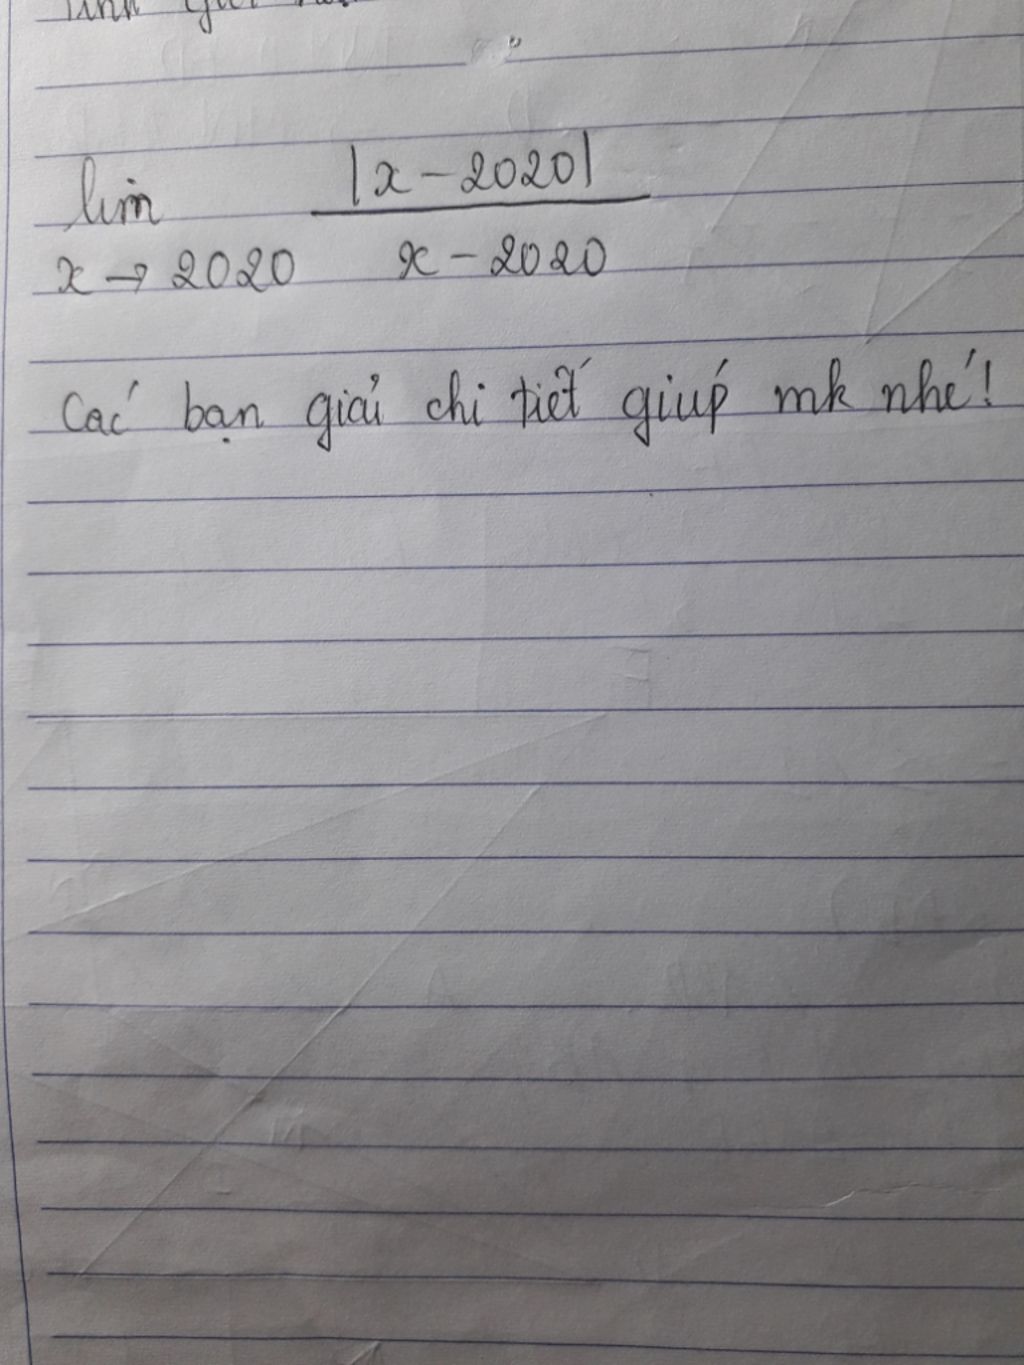 lim |x - 2020|
x → 2020 x - 2020
Các bạn giải chi tiết giúp mk nhé!